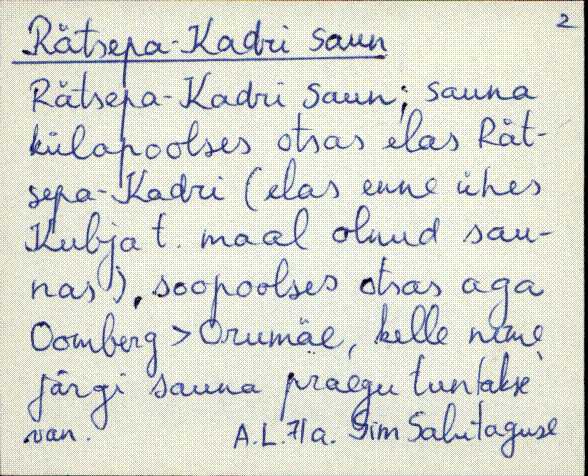 2
Rätsepa-Kadri saun
Rätsepa-Kadri saun; sauna
külapoolses otsas elas Rät-
sepa-Kadri (elas enne ühes
Kubja t. maal olnud sau-
nas), soopoolses otsas aga
Oomberg > Orumäe, kelle nime
järgi sauna praegu tuntakse
van. A.L. 71a. Sim Salutaguse